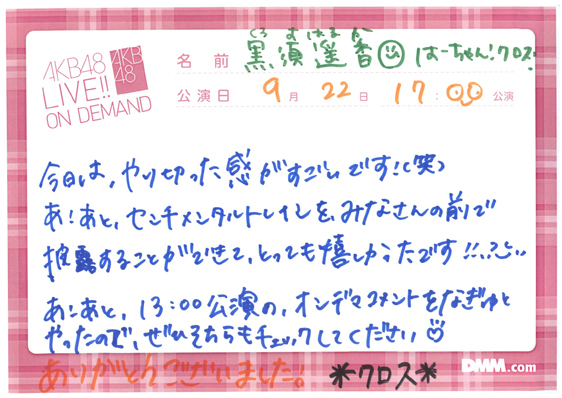 AKB48
LIVE!!
ON DEMAND
AKB
48
くろ すはるか
名前 黒須遥香 はーちゃん!クロス!
公演日 9月 22日 17:00 公演
今日は、やり切った感がすごいです!(笑)
あ!あと、センチメンタルトレインを、みなさんの前で
披露することができて、とっても嬉しかったです!!
あ!あと、13:00公演の、オンデマコメントをなぎゅと
やったので、ぜひそちらもチェックしてください
ありがとうございました! *クロス*
DMM.com